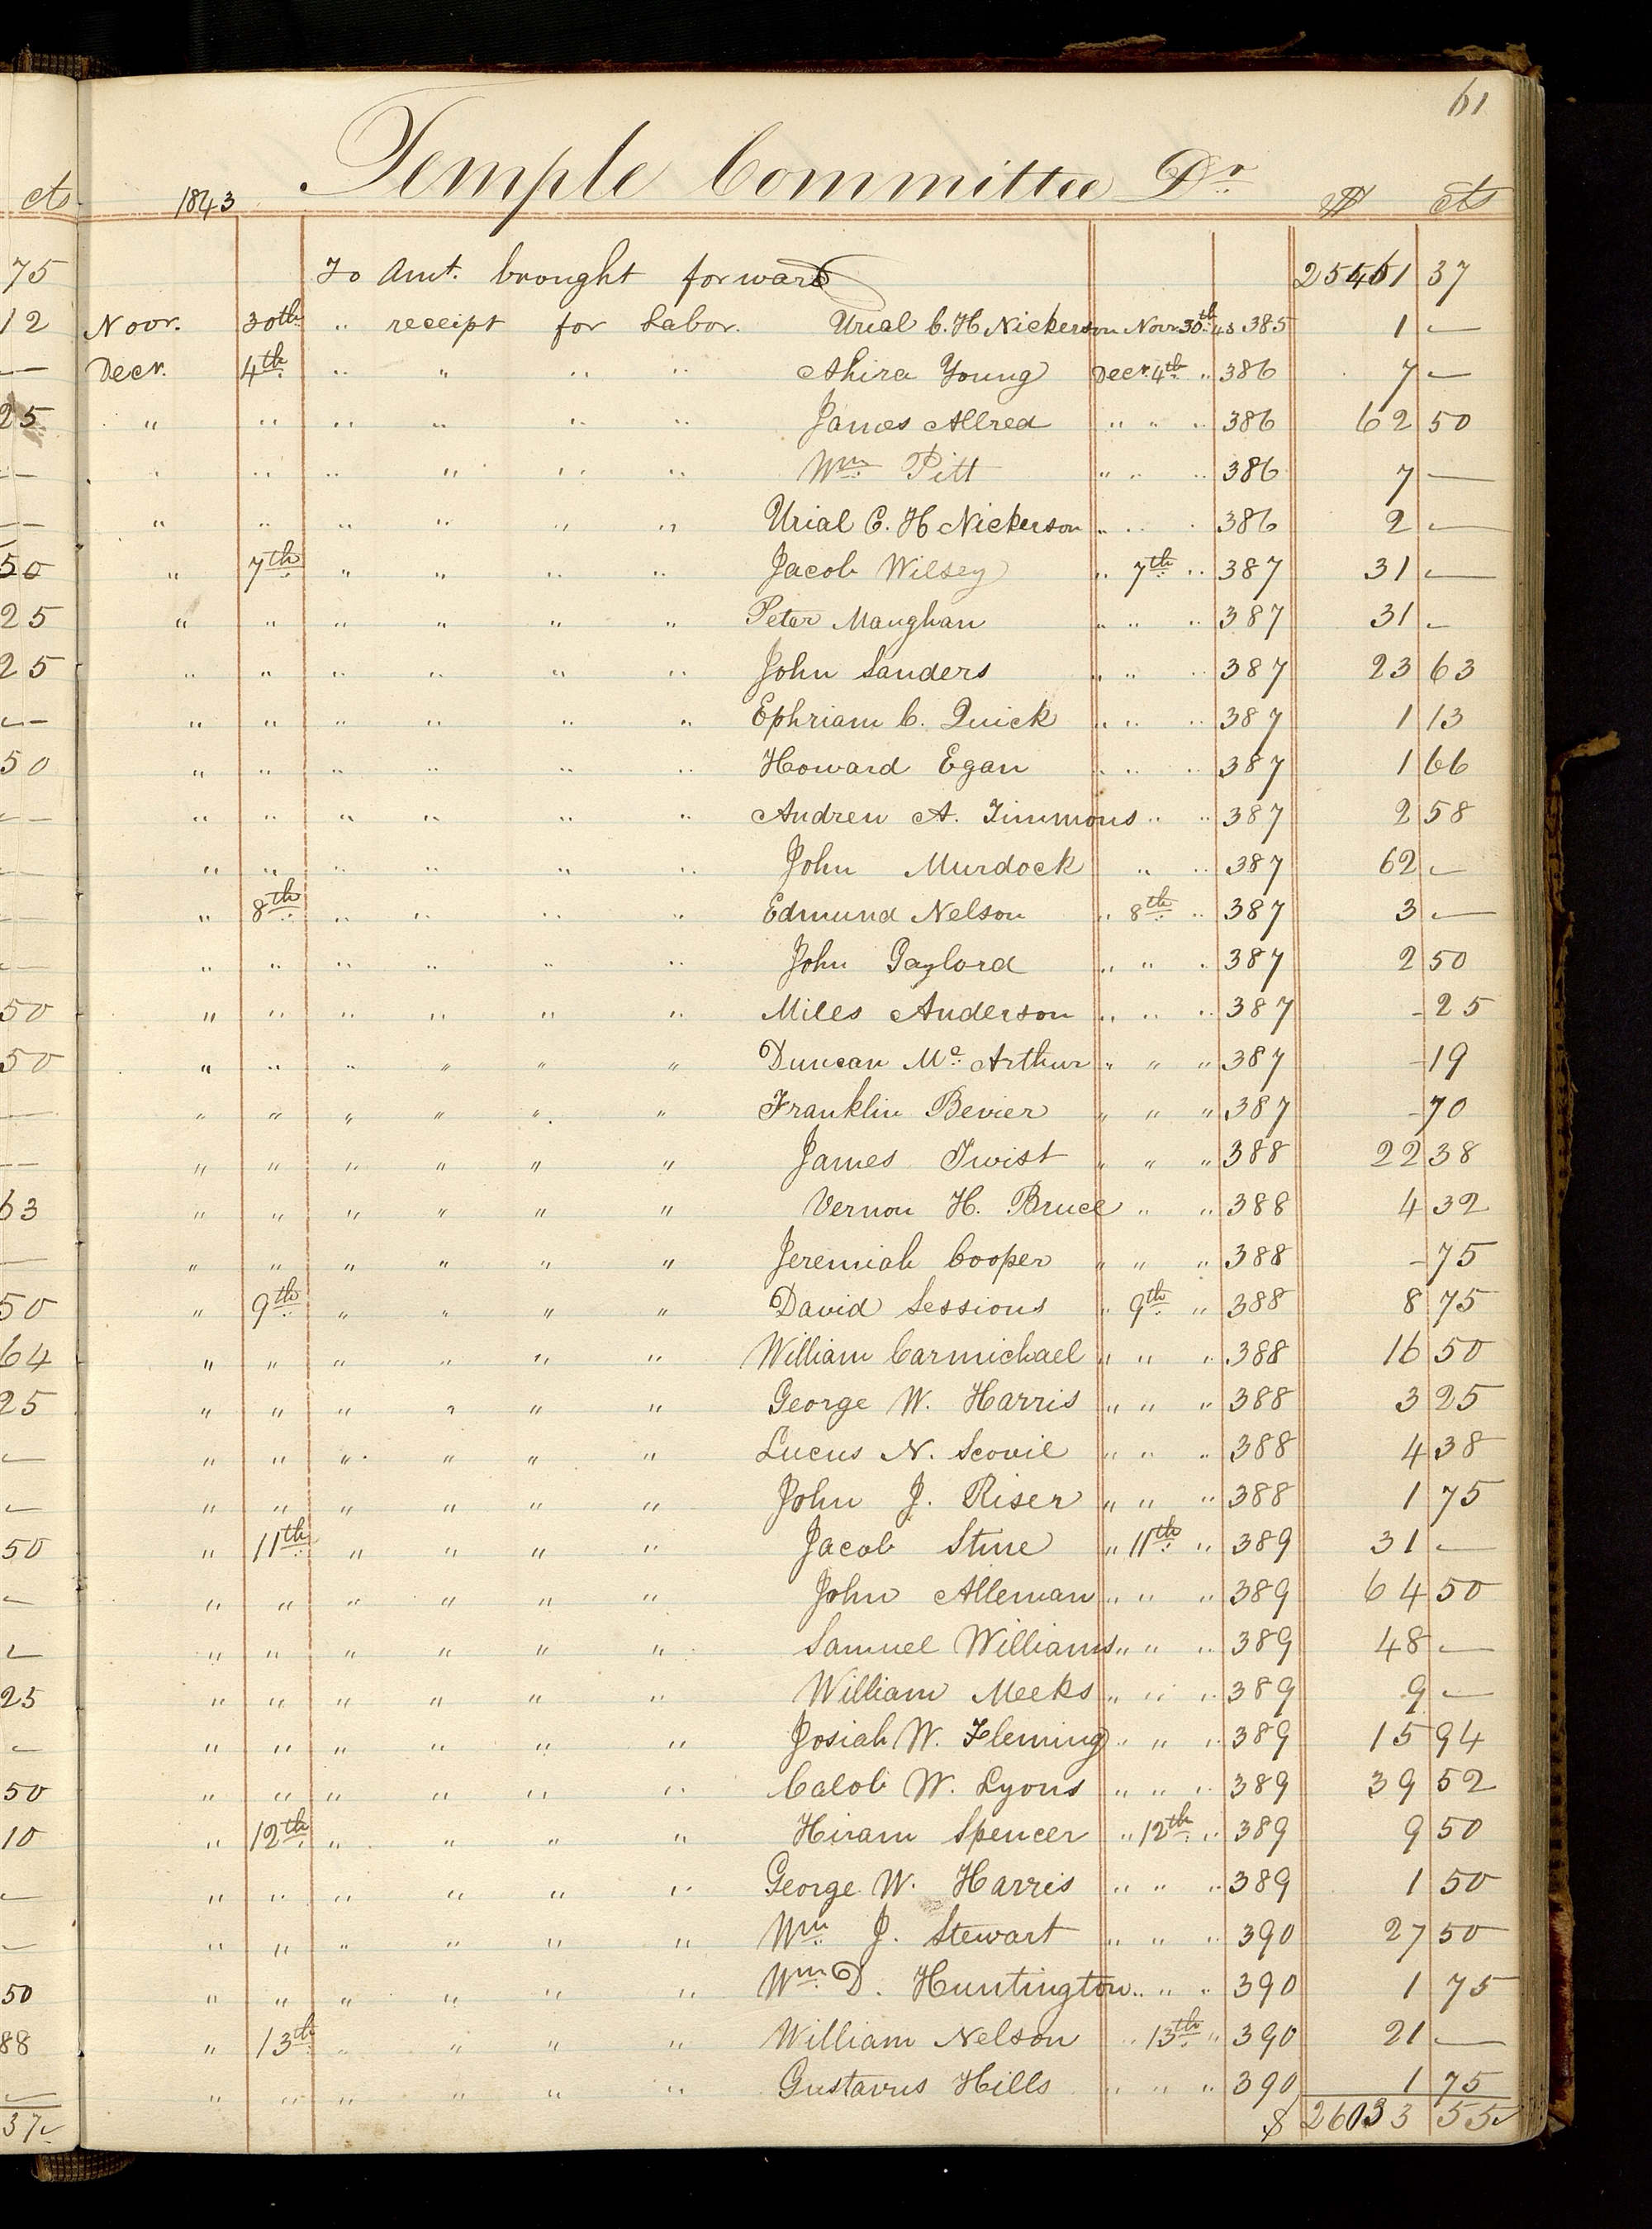 61
Temple Committee Dr.
cts 1843 $ cts
75 To Amt. brought forward 25461 37
12 Novr. 30th " receipt for Labor. Urial C. H Nickerson Novr 30th 43 385 1 —
— Decr. 4th " " " " Ahira Young Decr. 4th " 386 7 —
25 " " " " " " James Allred " " " 386 62 50
— " " " " " " Wm Pitt " " " 386 7 —
— " " " " " " Urial C. H Nickerson " " " 386 2 —
50 " 7th " " " " Jacob Wilsey " 7th " 387 31 —
25 " " " " " " Peter Maughan " " " 387 31 —
25 " " " " " " John Sanders " " " 387 23 63
— " " " " " " Ephriam C. Quick " " " 387 1 13
50 " " " " " " Howard Egan " " " 387 1 66
— " " " " " " Andrew A. Timmons " " 387 2 58
— " " " " " " John Murdock " " 387 62 —
— " 8th " " " " Edmund Nelson " 8th " 387 3 —
— " " " " " " John Gaylord " " " 387 2 50
50 " " " " " " Miles Anderson " " " 387 - 25
50 " " " " " " Duncan Mc Arthur " " " 387 - 19
— " " " " " " Franklin Bevier " " " 387 - 70
— " " " " " " James Twist " " " 388 22 38
63 " " " " " " Vernon H. Bruce " " 388 4 32
— " " " " " " Jeremiah Cooper " " " 388 - 75
50 " 9th " " " " David Sessions " 9th " 388 8 75
64 " " " " " " William Carmichael " " " 388 16 50
25 " " " " " " George W. Harris " " " 388 3 25
— " " " " " " Lucus N. Scovil " " " 388 4 38
— " " " " " " John J. Riser " " " 388 1 75
50 " 11th " " " " Jacob Stine " 11th " 389 31 —
— " " " " " " John Alleman " " " 389 64 50
— " " " " " " Samuel Williams " " " 389 48 —
25 " " " " " " William Meeks " " " 389 9 —
— " " " " " " Josiah W. Fleming " " " 389 15 94
50 " " " " " " Calob W. Lyons " " " 389 39 52
10 " 12th " " " " Hiram Spencer " 12th " 389 9 50
— " " " " " " George W. Harris " " " 389 1 50
— " " " " " " Wm J. Stewart " " " 390 27 50
50 " " " " " " Wm D. Huntington " " " 390 1 75
88 " 13th " " " " William Nelson " 13th " 390 21 —
— " " " " " " Gustavus Hills " " " 390 1 75
37 $ 26033 55